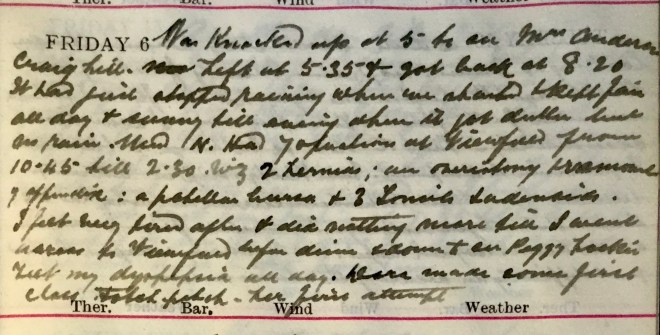 Ther. Bar. Wind Weather
FRIDAY 6 Was Knocked up at 5 to see Mrs Anderson
Craighill. Left at 5.35 & got back at 8.20
It had just stopped raining when we started & kept fair
all day & sunny till evening when it got duller but
no rain. Wind N. Had 7 operations at Viewfield from
10.45 till 2.30. viz 2 hernias; an ovariotomy & removal
of appendix: a patellar bursa & 3 Tonsils & adenoids.
I felt very tired after & did nothing more till I went
across to Viewfield before dinner & down to see Peggy
Felt my dyspepsia all day. Dora made some first
class hotch-potch - her first attempt
Ther. Bar. Wind Weather